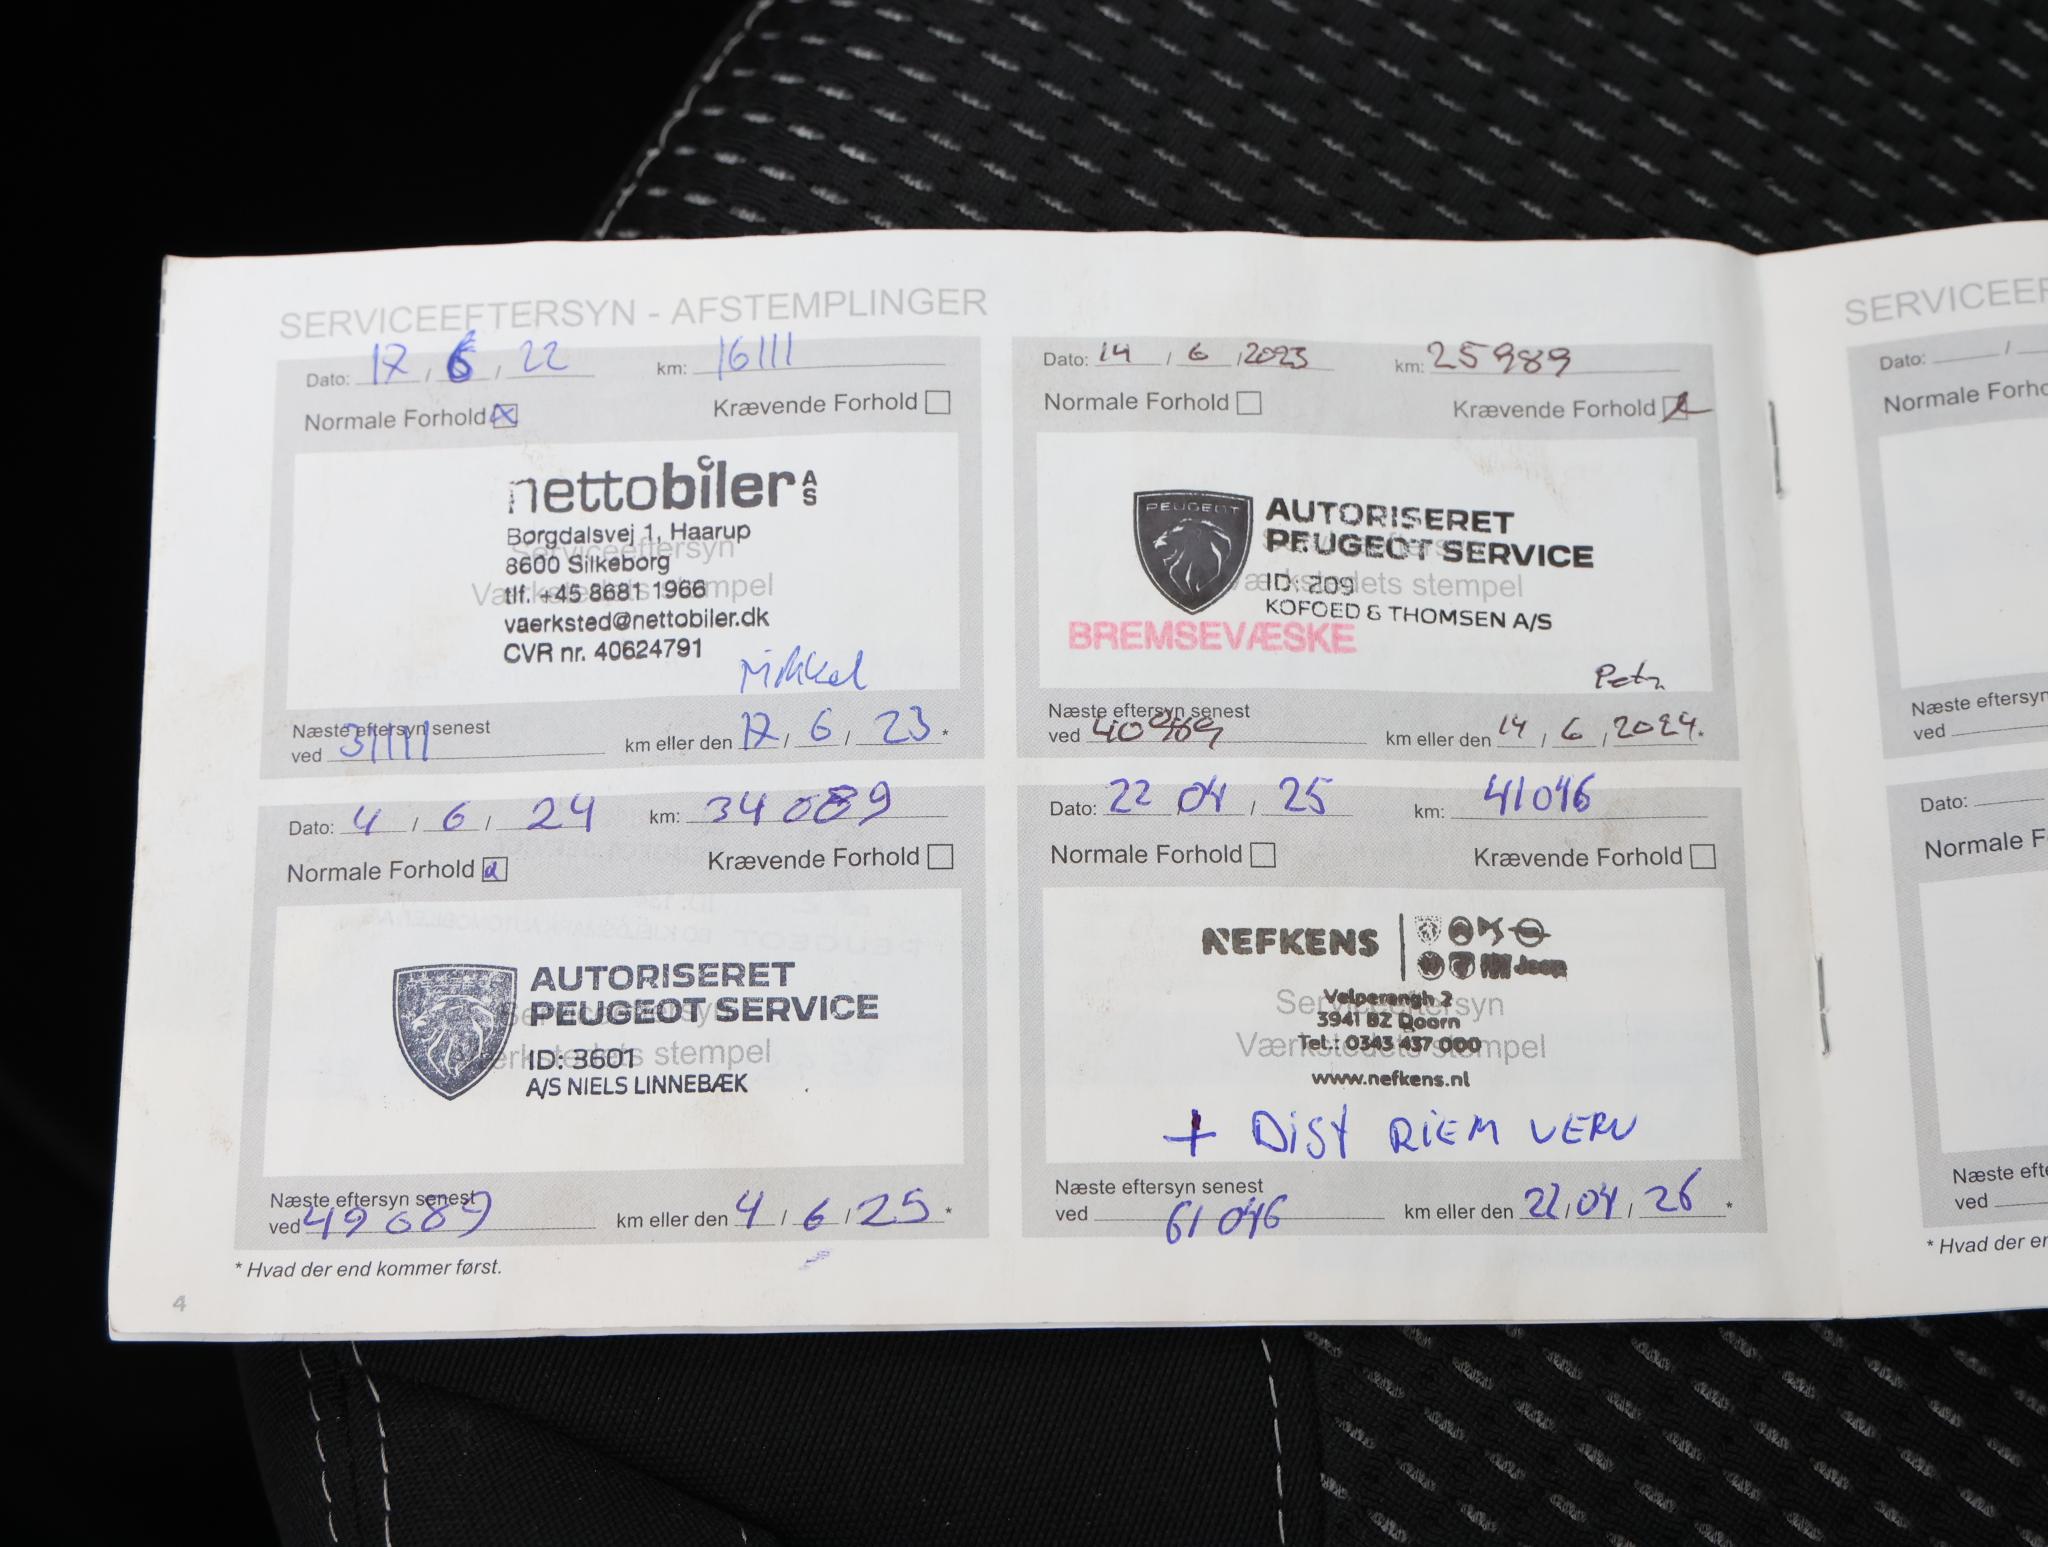 SERVICEEFTERSYN - AFSTEMPLINGER
Dato: 17 / 6 / 22 km: 16111
Normale Forhold Krævende Forhold
nettobiler A/S
Borgdalsvej 1, Haarup
8600 Silkeborg
tlf. +45 8681 1966
vaerksted@nettobiler.dk
CVR nr. 40624791
Serviceeftersyn
Værkstedets stempel
Mikkel
Næste eftersyn senest
ved 31111 km eller den 17 / 6 / 23 *
Dato: 14 / 6 / 2023 km: 25989
Normale Forhold Krævende Forhold
PEUGEOT
AUTORISERET
PEUGEOT SERVICE
ID: 209
KOFOED & THOMSEN A/S
Værkstedets stempel
BREMSEVÆSKE
Næste eftersyn senest
ved 40989 km eller den 14 / 6 / 2024 *
Dato: 4 / 6 / 24 km: 34089
Normale Forhold Krævende Forhold
AUTORISERET
PEUGEOT SERVICE
ID: 3601
A/S NIELS LINNEBÆK
Serviceeftersyn
Værkstedets stempel
Næste eftersyn senest
ved 49089 km eller den 4 / 6 / 25 *
Dato: 22 / 04 / 25 km: 41046
Normale Forhold Krævende Forhold
NEFKENS
Jeep
Velperengh 2
3941 BZ Doorn
Tel.: 0343 437 000
www.nefkens.nl
Serviceeftersyn
Værkstedets stempel
+ DIST RIEM VERV
Næste eftersyn senest
ved 61046 km eller den 22 / 04 / 26 *
* Hvad der end kommer først.
4
SERVICEEF
Dato: /
Normale Forho
Næste eftersyn
ved
Dato:
Normale F
Næste eft
ved
* Hvad der en